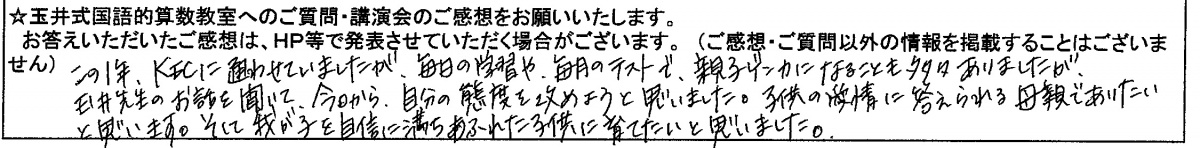 ☆玉井式国語的算数教室へのご質問・講演会のご感想をお願いいたします。
お答えいただいたご感想は、HP等で発表させていただく場合がございます。（ご感想・ご質問以外の情報を掲載することはございま
せん）この1年、KECに通わせていましたが、毎日の学習や、毎月のテストで、親子ゲンカになることも多々ありましたが、
玉井先生のお話を聞いて、今日から、自分の態度を改めようと思いました。子供の激情に答えられる母親でありたい
と思います。そして我が子を自信に満ちあふれた子供に育てたいと思いました。